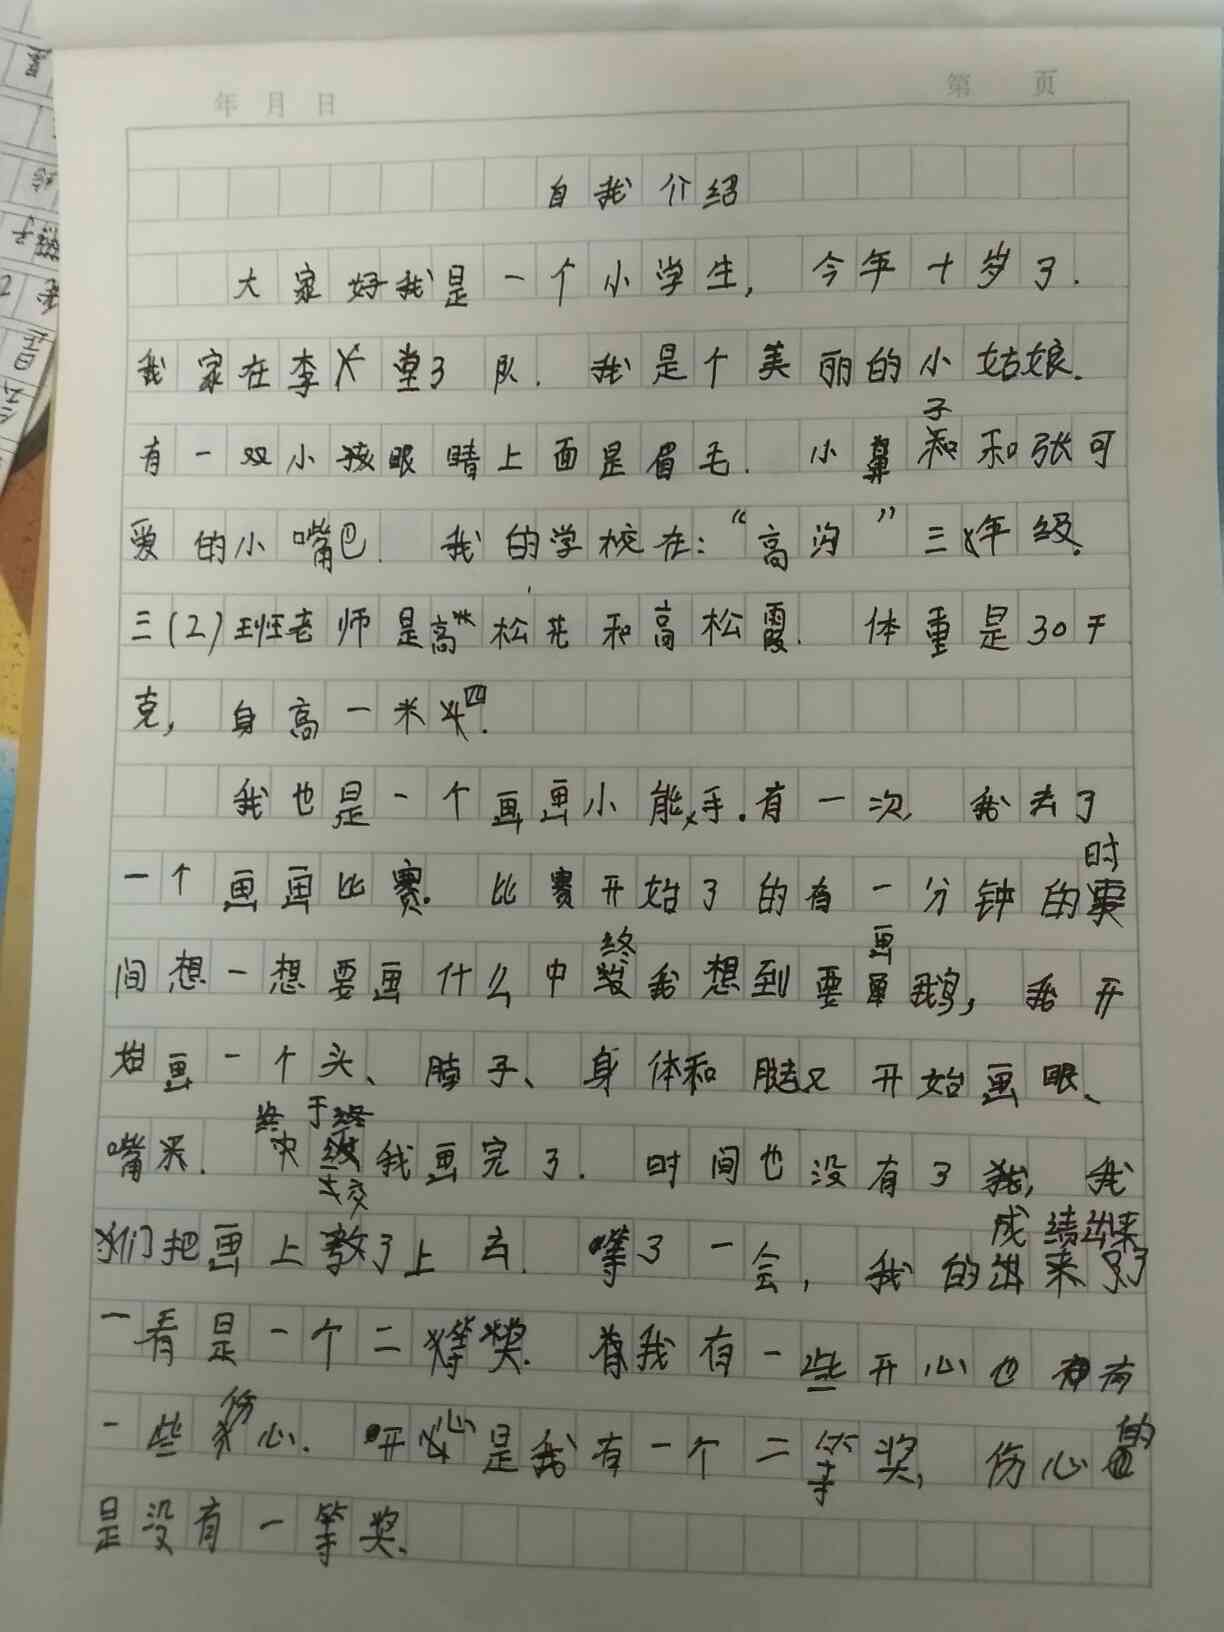 年 月 日
第 页
自我介绍
大家好我是一个小学生，今年十岁了.
我家在李大堂3队. 我是个美丽的小姑娘.
有一双小孩眼睛上面是眉毛. 小鼻子和和张可
爱的小嘴巴. 我的学校在：“高沟”三年级.
三(2)班老师是高松花和高松霞. 体重是30千
克，身高一米四.
我也是一个画画小能手.有一次，我去了
一个画画比赛. 比赛开始了的有一分钟的时
间想一想要画什么中终我想到要画鹅，我开
始画一个头、脖子、身体和腿又开始画眼、
嘴巴. 终于我画完了. 时间也没有了，我
们把画上交了上去. 等了一会，我的成绩出来了
一看是一个二等奖. 我有一些开心也有
一些伤心. 开心是我有一个二等奖，伤心的
是没有一等奖.